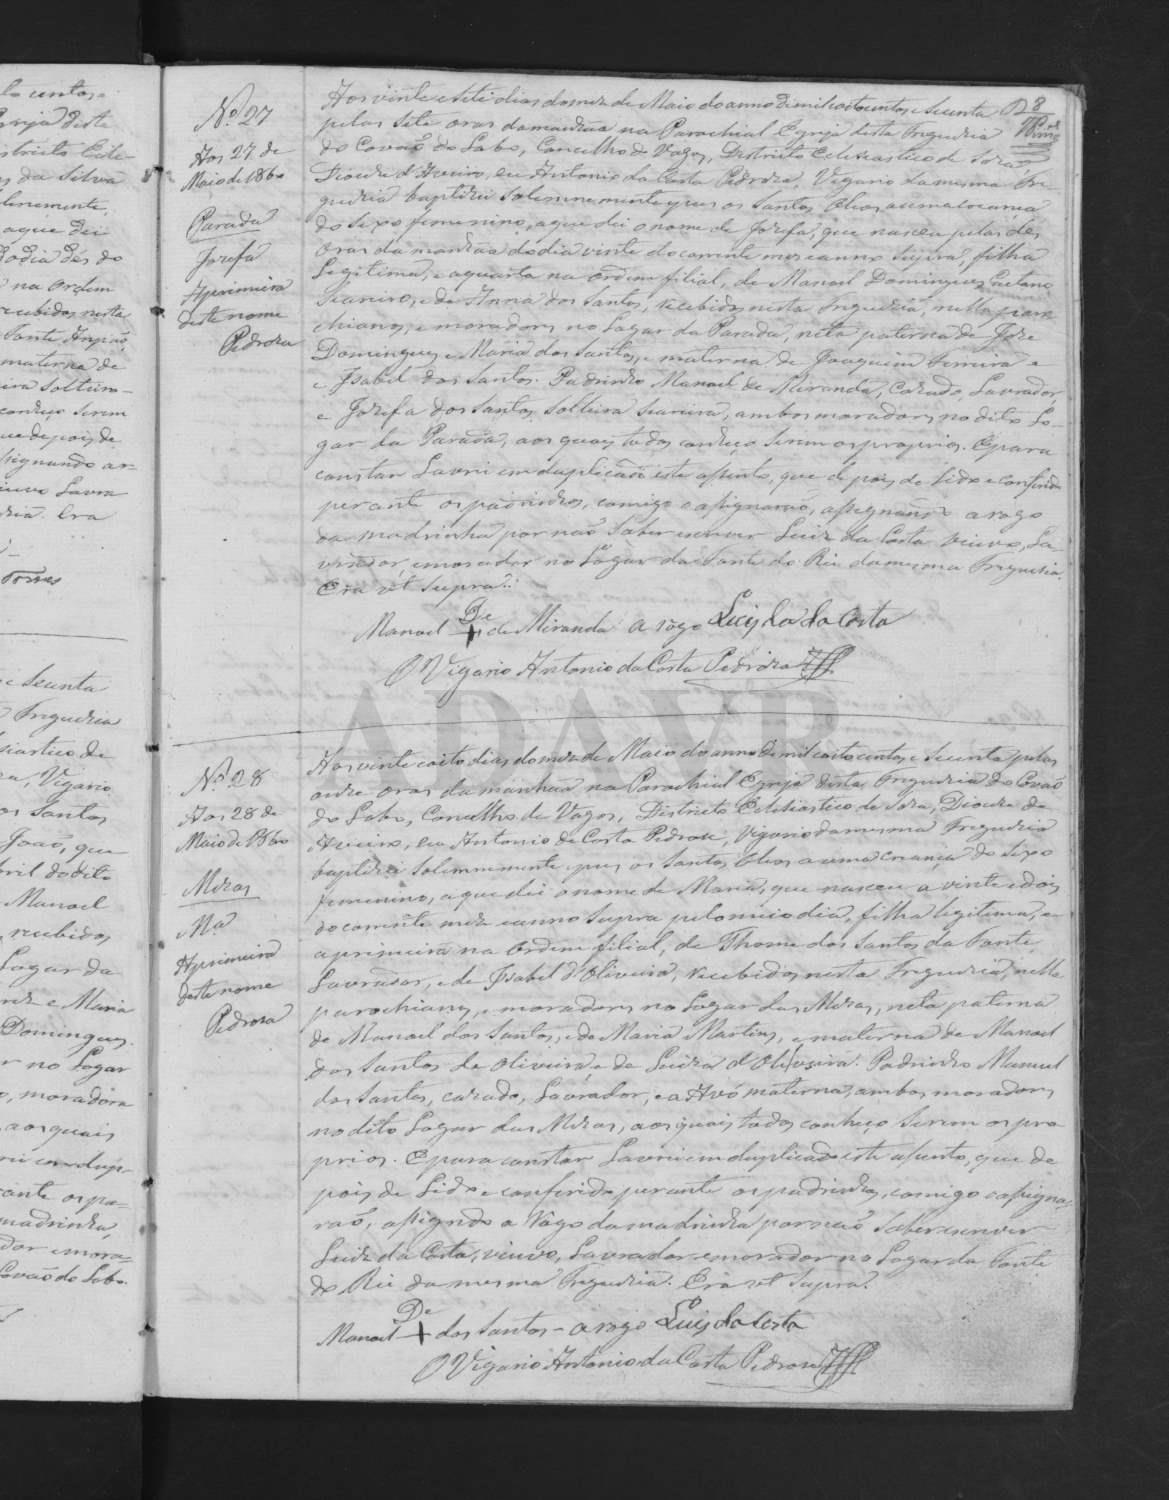 Nº 27
Aos 27 de
Maio de 1860
Parada
Jozefa
A primeira
deste nome
Pedroza
28
Aos vinte e sete dias do mez de Maio do anno de mil oito centos e secenta
pelas sete oras da manhãa na Parochial Egreja desta Freguezia
do Covaõ do Lobo, Concelho de Vagos, Districto Eclesiastico de Soza,
Diocese d'Aveiro, eu Antonio da Costa Pedroza, Vigario da mesma Fre-
guezia baptizei solemnemente e pus os Santos Oleos a uma creança
do sexo femenino, a que dei o nome de Jozefa, que nasceu pelas dés
oras da manhãa do dia vinte do corrente mes e anno supra, filha
legitima, e a quarta na ordem filial, de Manoel Domingues Caetano
Seareiro, e de Anna dos Santos, recebidos nesta Freguezia, nella paro
chianos, e moradores no Lugar da Parada, neta paterna de Joze
Domingues e Maria dos Santos, e materna de Joaquim Ferreira e
e Isabel dos Santos. Padrinho Manoel de Miranda, Cazado, Lavrador,
e Jozefa dos Santos, solteira seareira, ambos moradores no dito Lo-
gar da Parada, aos quaes todos conheço serem os proprios. E para
constar Lavrei em duplicado este assento, que de pois de lido e conferido
perante os padrinhos, comigo o assignaraõ, assignando a rogo
da madrinha por naõ saber escrever Luiz da Costa viuvo, La-
vrador, e morador no Lugar da Fonte do Rei da mesma Freguezia.
Era ut supra.
Manoel De + de Miranda A rogo Luiz da Costa
O Vigario Antonio da Costa Pedroza
Nº 28
Aos 28 de
Maio de 1860
Mezas
Mª
A primeira
deste nome
Pedroza
Aos vinte e oito dias do mez de Maio do anno de mil e oito centos e secenta pelas
onze oras da manhãa na Parochial Egreja desta Freguezia do Covaõ
do Lobo, Concelho de Vagos, Districto Eclesiastico de Soza, Diocese de
Aveiro, eu Antonio da Costa Pedroza, Vigario da mesma Freguezia
baptizei solemnemente e pus os Santos Oleos a uma creança do sexo
femenino, a que dei o nome de Maria, que nasceu a vinte e dois
do corrente mez e anno supra pelo meio dia, filha legitima, e
a primeira na ordem filial, de Thome dos Santos da Fonte,
Lavrador, e de Izabel d'Oliveira, recebidos nesta Freguezia, nella
parochianos, e moradores no Lugar das Mezas, neta paterna
de Manoel dos Santos, e de Maria Martins, e materna de Manoel
dos Santos de Oliveira, e de Luiza d'Oliveira. Padrinho Manoel
dos Santos, cazado, Lavrador, e a Avó materna, ambos moradores
no dito Lugar das Mezas, aos quais todos conheço serem os pro
prios. E para constar Lavrei em duplicado este assento, que de
pois de Lido e conferido perante os padrinhos, comigo o assigna
raõ, assigndo a Rogo da madrinha por naõ saber escrever
Luiz da Costa, viuvo, Lavrador e morador no Lugar da Fonte
do Rei da mesma Freguezia. Era ut supra.
Manoel De + dos Santos - A rogo Luiz da Costa
O Vigario Antonio da Costa Pedroza
ADAVR